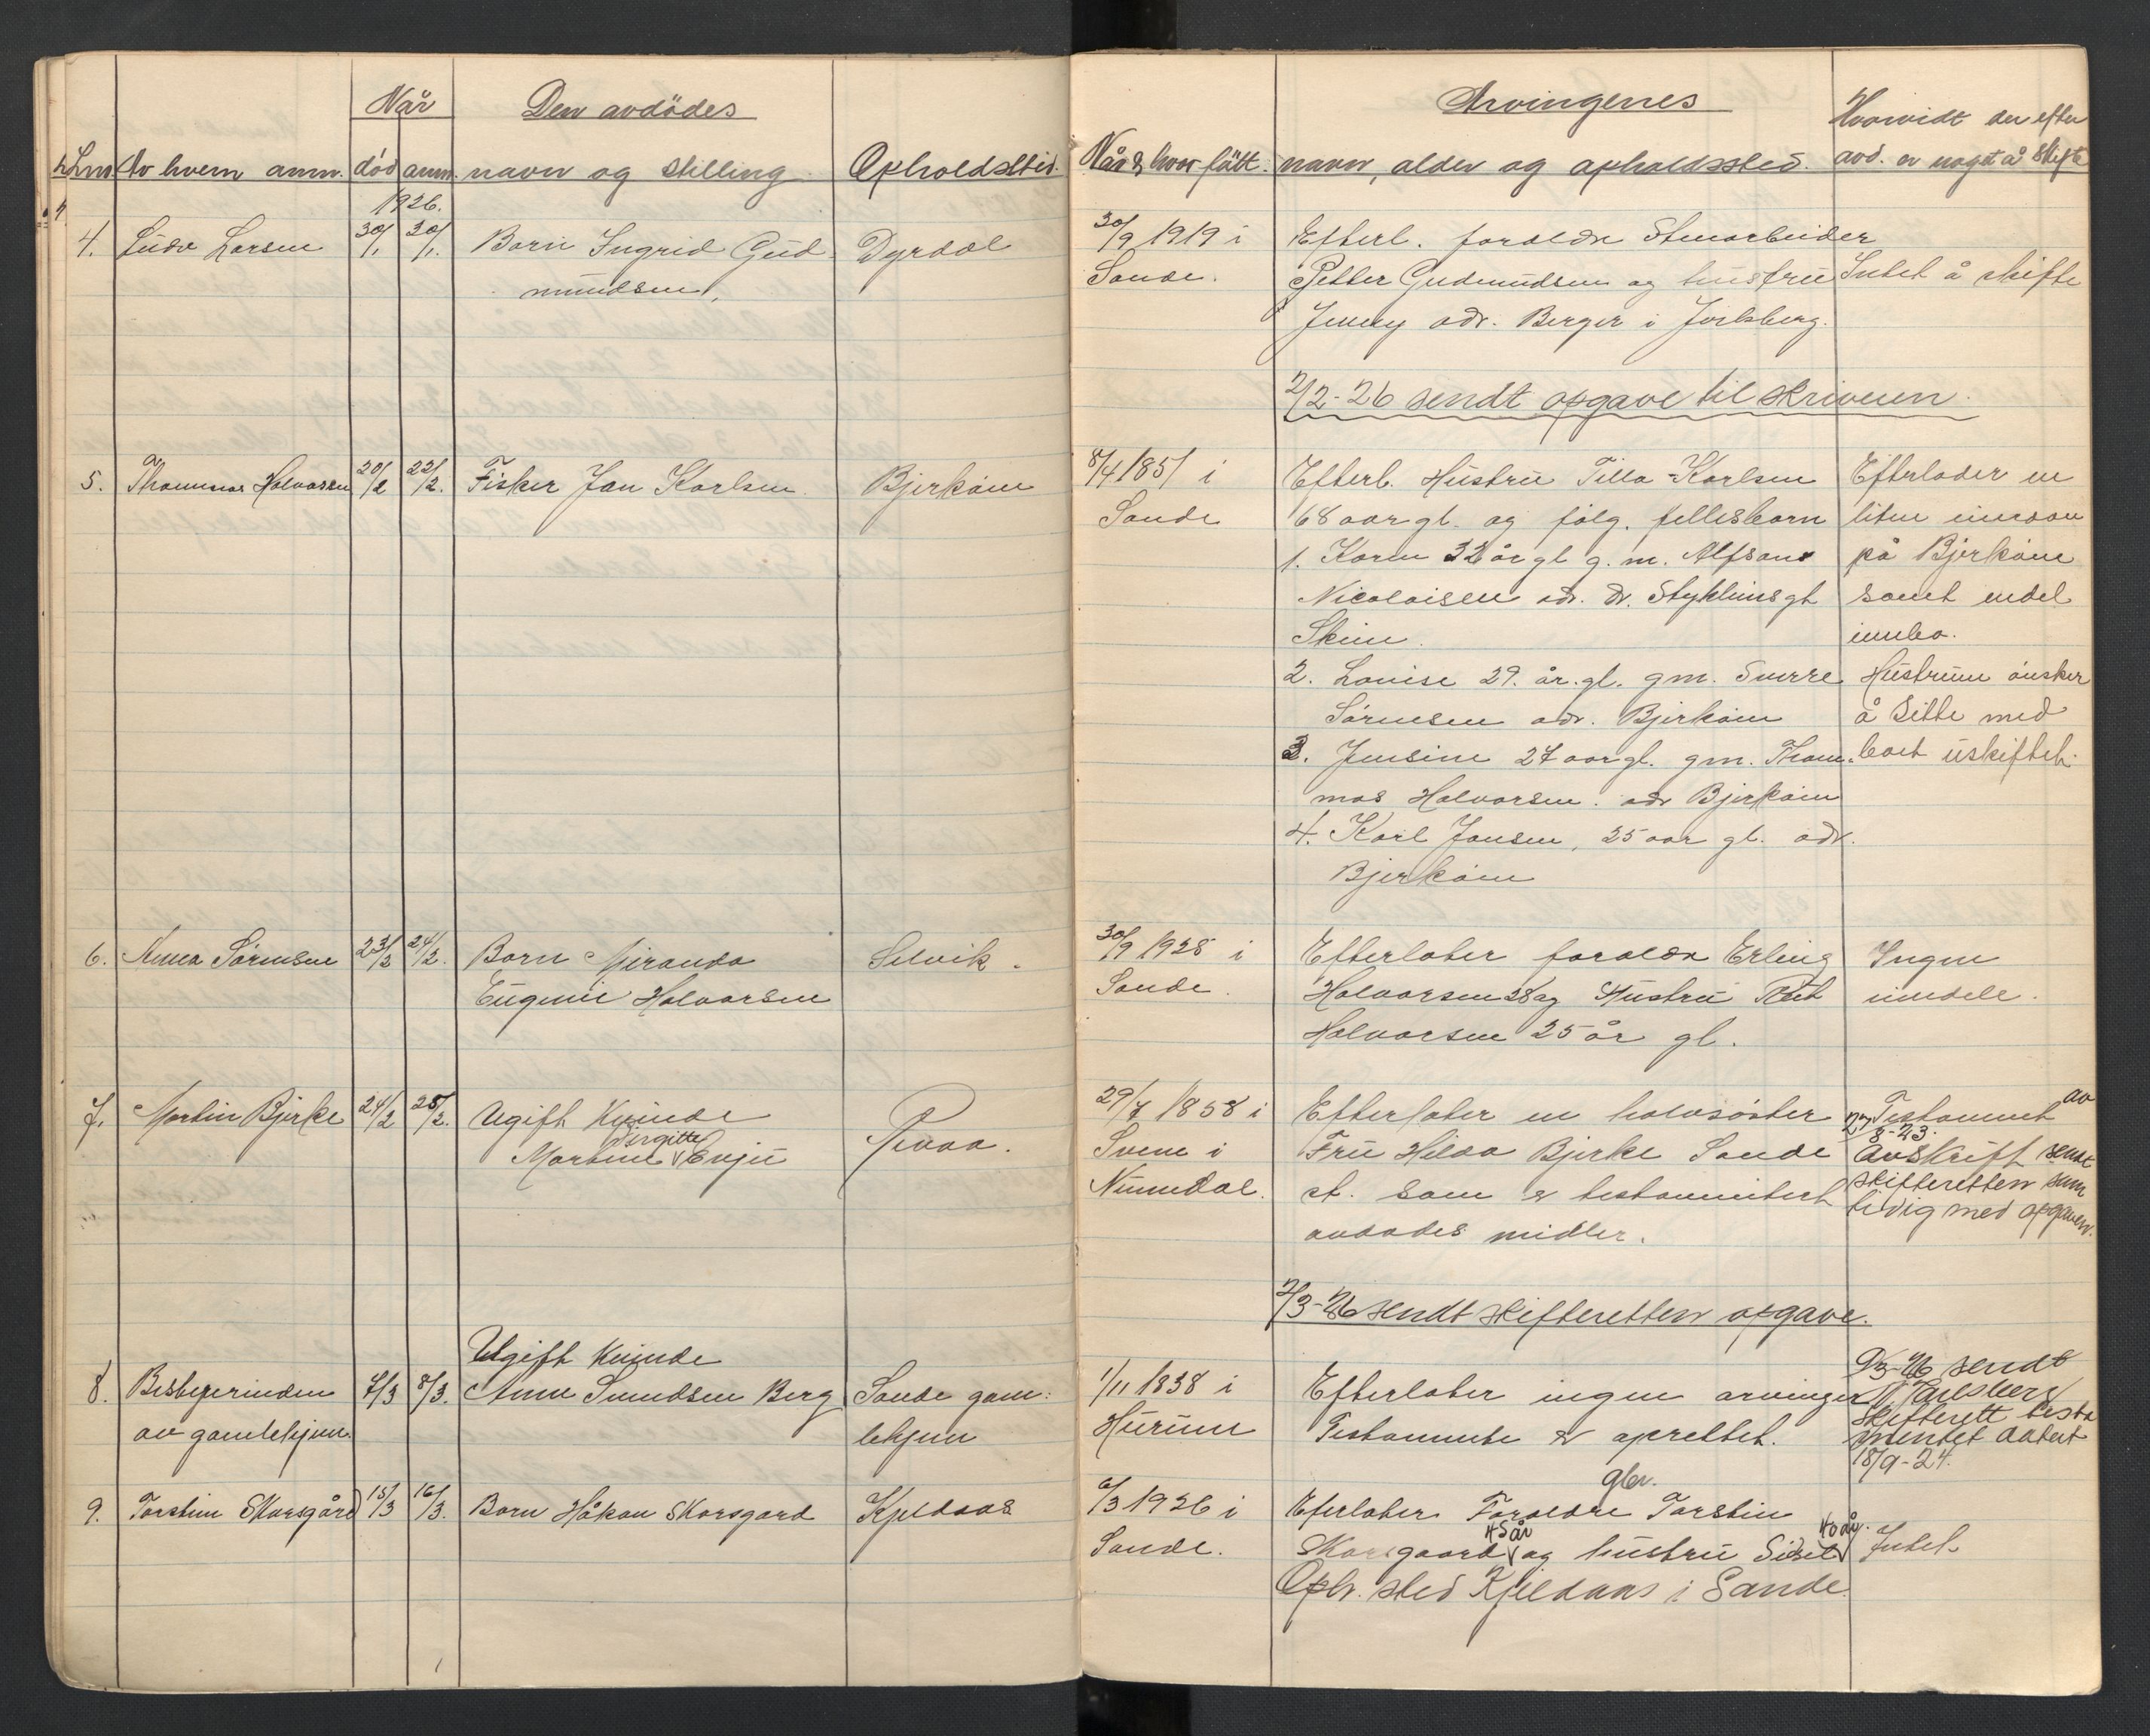 Når
Den avdödes
Lnr Av hvem anm. död anm. navn og stilling Opholdssted.
1926.
4. Ludv Larsen 30/1 30/1. Barn Ingrid Gud
mundsen, Dyrdal
5. Thommas Halvorsen 20/2 22/2. Fisker Jan Karlsen. Bjerköim
6. Anna Sörensen 23/2 24/2. Barn Miranda Selvik.
Eugenie Halvorsen
7. Martin Bjerke 24/2 25/2. Ugift Kvinde
Birgitte
Martine Evju
8. Bestyrerinden 7/3 8/3. Ugift Kvinde
Anne Svendsen Berg Sande gam:
av gamlehjem. lehjem
9. Torstein Skarsgård 15/3 16/3. Barn Håkan Skarsgard Kjeldaas
Arvingenes
Hvorvidt der efter
Når & hvor fött. navn, alder og opholdssted. avd. er noget å skifte
30/9 1919 i Efterl. foraldre Stenarbeider
Sande. Petter Gudmundsen og hustru Intet å skifte
Jenny adr. Berger i Jarlsberg.
2/2-26 sendt opgave til skriveren.
8/4 1851 i Efterl. Hustru Tilla Karlsen Efterlader en
Sande 68 aar gl. og fölg. fellesbarn liten eiendom
1. Karen 32 år gl g. m. Alfsans på Bjerköim
Nicolaisen adr. Dr. gt samt endel
Skien. innbo.
2. Louise 29. år. gl. gm. Sverre Hustruen önsker
Sörensen adr. Bjerköim å sitte med
3. Jensine 27 aar gl. gm. Thom- boet uskiftet.
mas Halvorsen. adr Bjerköim
4. Karl Jansen, 25 aar gl. adr.
Bjerköim
30/9 1925 i Efterlater foraldre Erling Ingen
Sande. Halvorsen 28 og Hustru Rut eiendele.
Halvorsen 25 år gl.
29/7 1858 i Efterlater en halvsöster Testament av
27/8-23.
Svene i Fru Hilda Bjerke Sande Avskrift sendt
Numedal. st. som er testamentert skifteretten sam
avdödes midler. tidig med opgaven.
2/3-26 sendt skifteretten opgave.
9/3-26 sendt
1/11 1838 i Efterlater ingen arvinger N Jarlsberg
Hurum Testamente er oprettet. skifterett testa
mentet datert
18/9-24.
gbr.
6/3 1926 i Eferlater Foraldre Torstein
45 år 40 år.
Sande. Skarsgaard og hustru Sidsel Intet.
Oph. sted Kjeldaas i Sande.